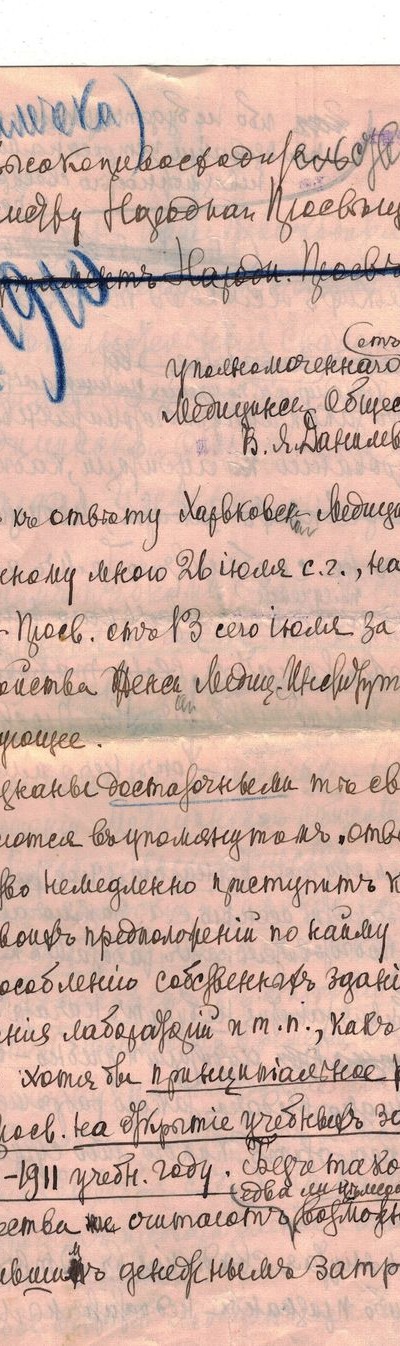 Народнаго Просвѣщ
Народн. Просв
1910
(отъ
уполномоченнаго
Медицинск. Общес
В. Я. Данилев
къ отвѣту Харьковск Медици
нному мною 26 іюля с.г., на
Просв. отъ 13 сего іюля за
ойства Женск Медиц. Институт
ующее.
достаточными тѣ св
ются въ упомянутомъ отвѣ
во немедленно приступитъ к
воихъ предположеній по найму
особленію собственныхъ здані
ния лабораторій и т. п., какъ
хотя бы принципіальное р
росв. на открытіе учебныхъ за
-1911 учебн. году. Безъ тако
едва ли
ества не считаютъ возможн
денежнымъ затр